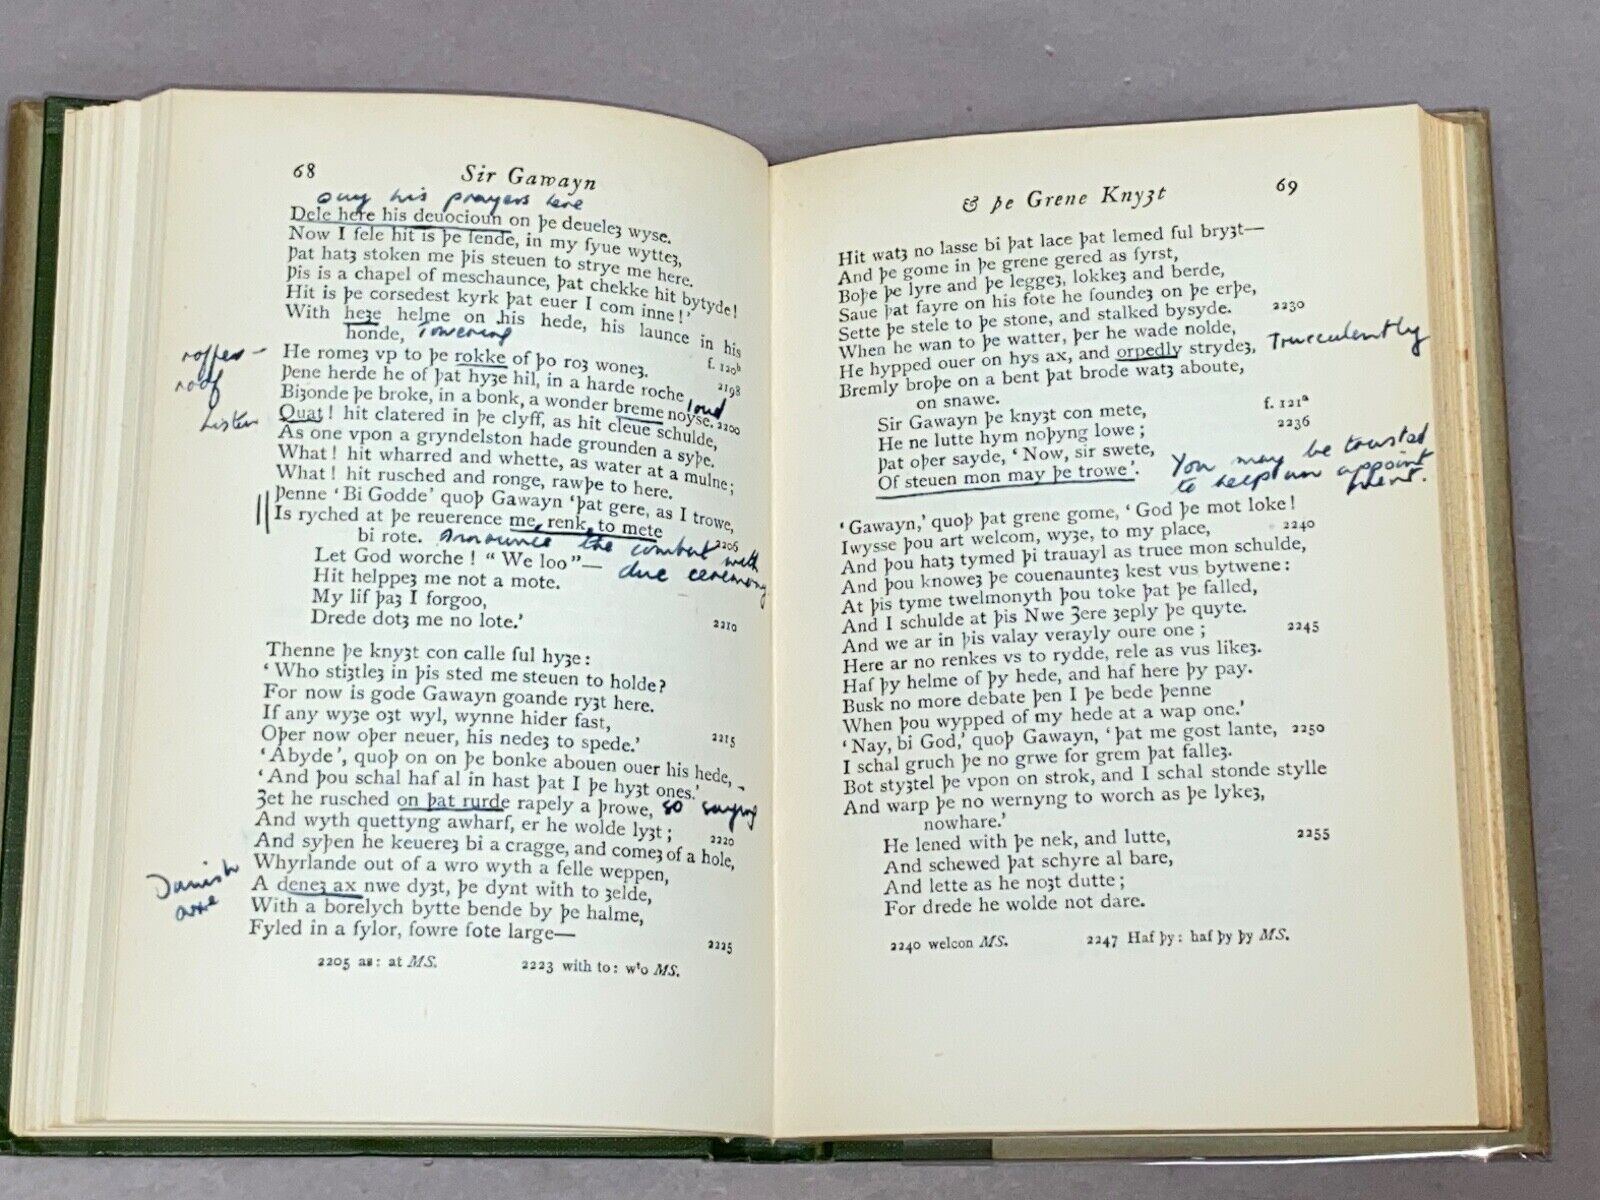 68 Sir Gawayn
his prayers here
Dele here his deuocioun on þe deueleȝ wyse.
Now I fele hit is þe fende, in my fyue wytteȝ,
Þat hatȝ stoken me þis steuen to strye me here.
Þis is a chapel of meschaunce, þat chekke hit bytyde!
Hit is þe corsedest kyrk þat euer I com inne!'
With heȝe helme on his hede, his launce in his
honde, Towering
He romeȝ vp to þe rokke of þo roȝ woneȝ. f. 120ᵇ
roof
Þene herde he of þat hyȝe hil, in a harde roche 2198
Biȝonde þe broke, in a bonk, a wonder breme noyse. loud 2200
Listen
Quat! hit clatered in þe clyff, as hit cleue schulde,
As one vpon a gryndelston hade grounden a syþe.
What! hit wharred and whette, as water at a mulne;
What! hit rusched and ronge, rawþe to here.
Þenne 'Bi Godde' quoþ Gawayn 'þat gere, as I trowe,
Is ryched at þe reuerence me, renk, to mete
bi rote. 2206
Announce the combat with
due ceremony
Let God worche! "We loo"—
Hit helppeȝ me not a mote.
My lif þaȝ I forgoo,
Drede dotȝ me no lote.' 2210
Thenne þe knyȝt con calle ful hyȝe:
'Who stiȝtleȝ in þis sted me steuen to holde?
For now is gode Gawayn goande ryȝt here.
If any wyȝe oȝt wyl, wynne hider fast,
Oþer now oþer neuer, his nedeȝ to spede.' 2215
'Abyde', quoþ on on þe bonke abouen ouer his hede,
'And þou schal haf al in hast þat I þe hyȝt ones.'
Ȝet he rusched on þat rurde rapely a þrowe, so saying
And wyth quettyng awharf, er he wolde lyȝt;
And syþen he keuereȝ bi a cragge, and comeȝ of a hole, 2220
Whyrlande out of a wro wyth a felle weppen,
Danish
axe
A deneȝ ax nwe dyȝt, þe dynt with to ȝelde,
With a borelych bytte bende by þe halme,
Fyled in a fylor, fowre fote large— 2225
2205 as: at MS. 2223 with to: wᵗo MS.
& þe Grene Knyȝt 69
Hit watȝ no lasse bi þat lace þat lemed ful bryȝt—
And þe gome in þe grene gered as fyrst,
Boþe þe lyre and þe leggeȝ, lokkeȝ and berde,
Saue þat fayre on his fote he foundeȝ on þe erþe,
Sette þe stele to þe stone, and stalked bysyde. 2230
When he wan to þe watter, þer he wade nolde,
He hypped ouer on hys ax, and orpedly strydeȝ, Truculently
Bremly broþe on a bent þat brode watȝ aboute,
on snawe.
Sir Gawayn þe knyȝt con mete, f. 121ᵃ
He ne lutte hym noþyng lowe; 2236
Þat oþer sayde, 'Now, sir swete,
Of steuen mon may þe trowe'.
You may be trusted
to keep an appoint
ment.
'Gawayn,' quoþ þat grene gome, 'God þe mot loke!
Iwysse þou art welcom, wyȝe, to my place, 2240
And þou hatȝ tymed þi trauayl as truee mon schulde,
And þou knoweȝ þe couenaunteȝ kest vus bytwene:
At þis tyme twelmonyth þou toke þat þe falled,
And I schulde at þis Nwe Ȝere ȝeply þe quyte.
And we ar in þis valay verayly oure one; 2245
Here ar no renkes vs to rydde, rele as vus likeȝ.
Haf þy helme of þy hede, and haf here þy pay.
Busk no more debate þen I þe bede þenne
When þou wypped of my hede at a wap one.'
'Nay, bi God,' quoþ Gawayn, 'þat me gost lante, 2250
I schal gruch þe no grwe for grem þat falleȝ.
Bot styȝtel þe vpon on strok, and I schal stonde stylle
And warp þe no wernyng to worch as þe lykeȝ,
nowhare.'
He lened with þe nek, and lutte, 2255
And schewed þat schyre al bare,
And lette as he noȝt dutte;
For drede he wolde not dare.
2240 welcon MS. 2247 Haf þy: haf þy þy MS.